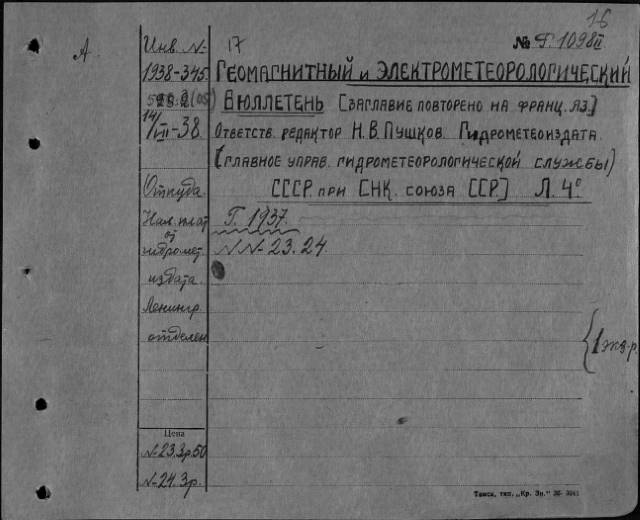 16
А
Инв. №
17
№ Г. 1098 II
1938-345.
ГЕОМАГНИТНЫЙ и ЭЛЕКТРОМЕТЕОРОЛОГИЧЕСКИЙ
(05)
БЮЛЛЕТЕНЬ [ЗАГЛАВИЕ ПОВТОРЕНО НА ФРАНЦ. ЯЗ.]
14/III-38.
ОТВЕТСТВ. РЕДАКТОР Н.В. ПУШКОВ. ГИДРОМЕТЕОИЗДАТА.
[ГЛАВНОЕ УПРАВ. ГИДРОМЕТЕОРОЛОГИЧЕСКОЙ СЛУЖБЫ)
Откуда.
СССР ПРИ СНК. СОЮЗА ССР] Л. 4°
Нал. плат
Г. 1937.
от
гидромет.
№№-23.24.
издата.
Ленингр.
отделен
1 экз-р.
Цена
№-23.3р.50
№-24.3р.
Томск, тип. „Кр. Зн."